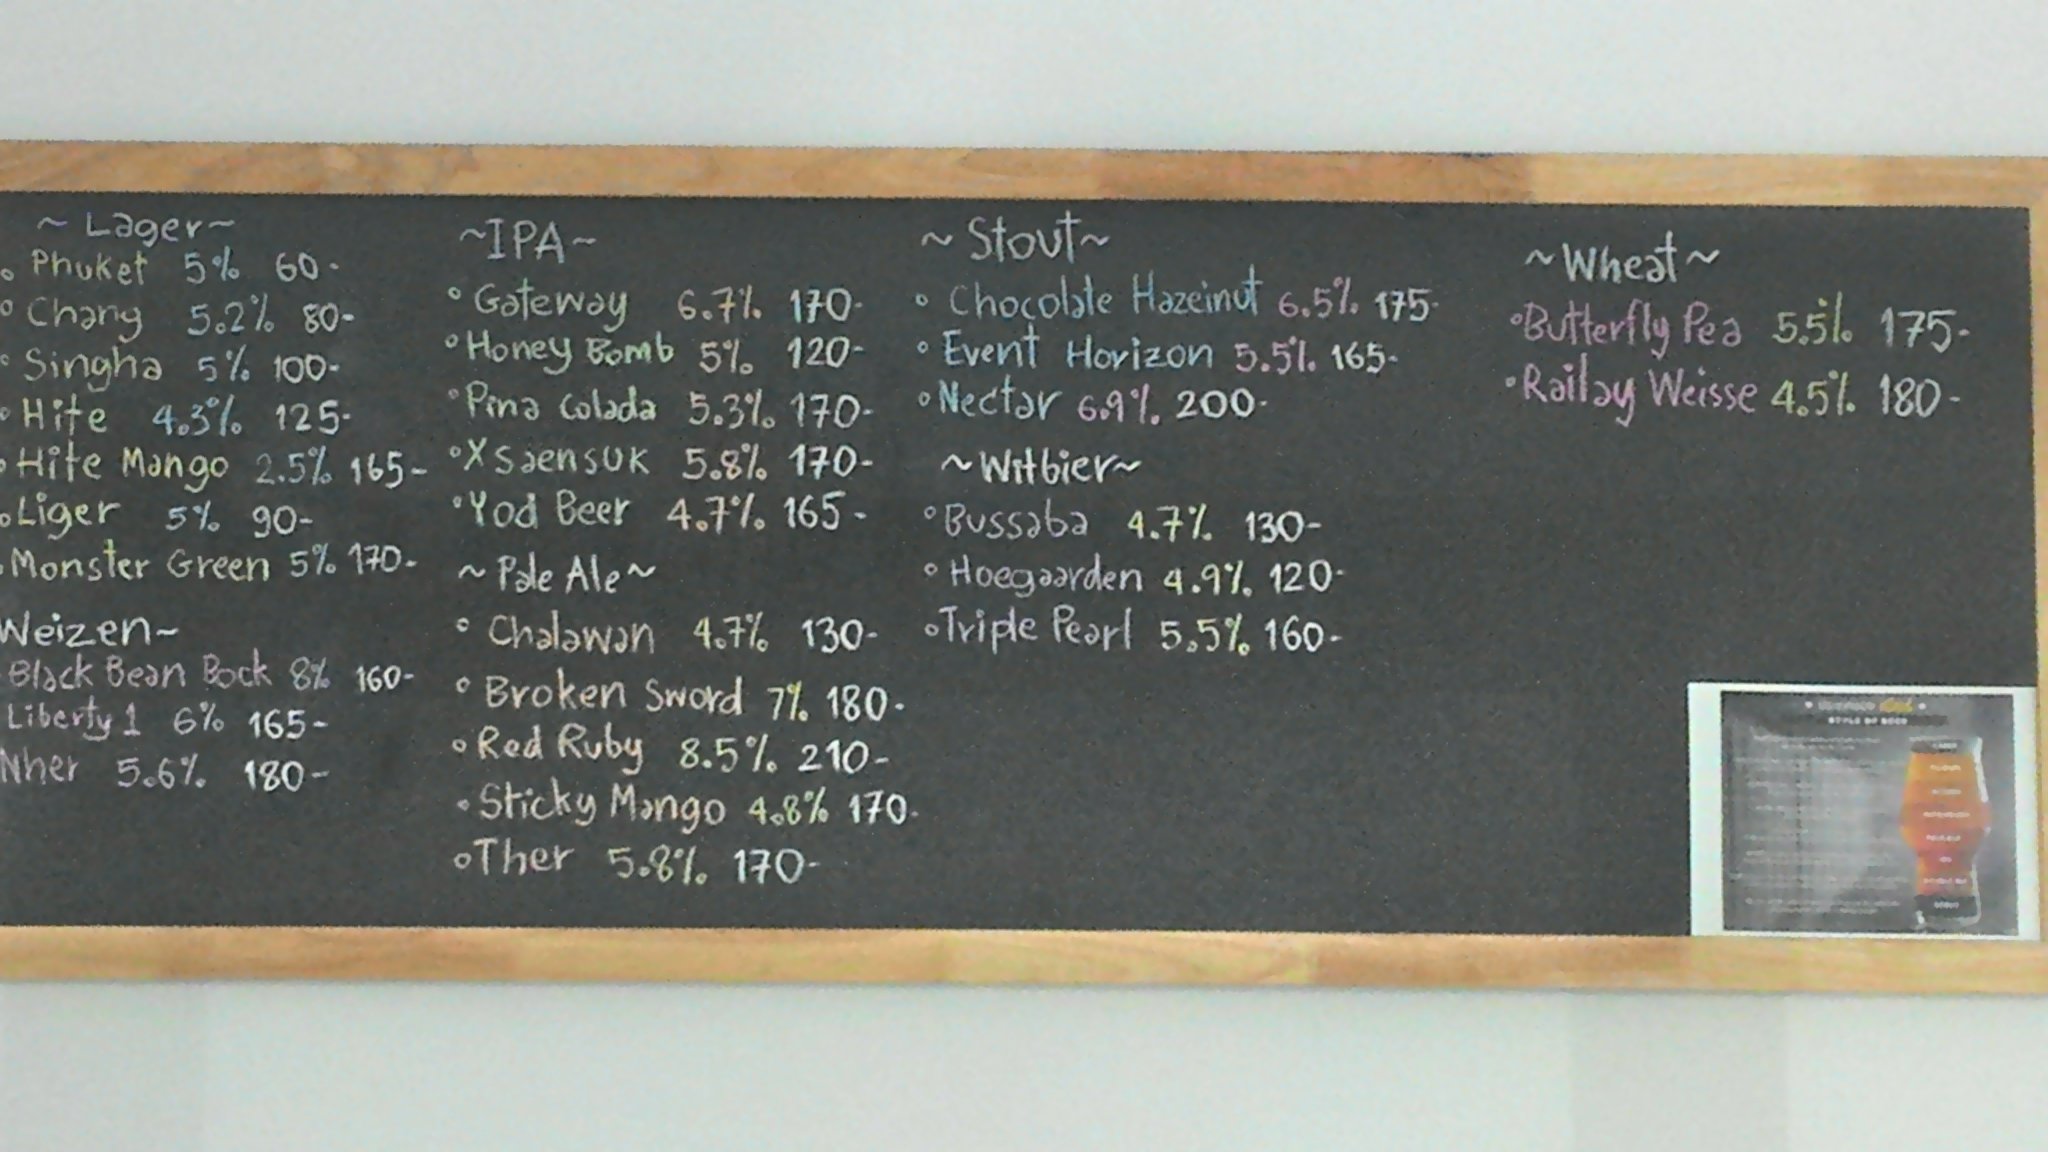 ~ Lager ~
Phuket 5% 60-
Chang 5.2% 80-
Singha 5% 100-
Hite 4.3% 125-
Hite Mango 2.5% 165-
Liger 5% 90-
Monster Green 5% 170-
Weizen~
Black Bean Bock 8% 160-
Liberty 1 6% 165-
Nher 5.6% 180-
~IPA~
Gateway 6.7% 170-
Honey Bomb 5% 120-
Pina Colada 5.3% 170-
Xsaensuk 5.8% 170-
Yod Beer 4.7% 165-
~ Pale Ale ~
Chalawan 4.7% 130-
Broken Sword 7% 180-
Red Ruby 8.5% 210-
Sticky Mango 4.8% 170-
Ther 5.8% 170-
~ Stout ~
Chocolate Hazeinut 6.5% 175-
Event Horizon 5.5% 165-
Nectar 6.9% 200-
~Witbier~
Bussaba 4.7% 130-
Hoegaarden 4.9% 120-
Triple Pearl 5.5% 160-
~Wheat~
Butterfly Pea 5.5% 175-
Railay Weisse 4.5% 180-
STYLE OF BEER